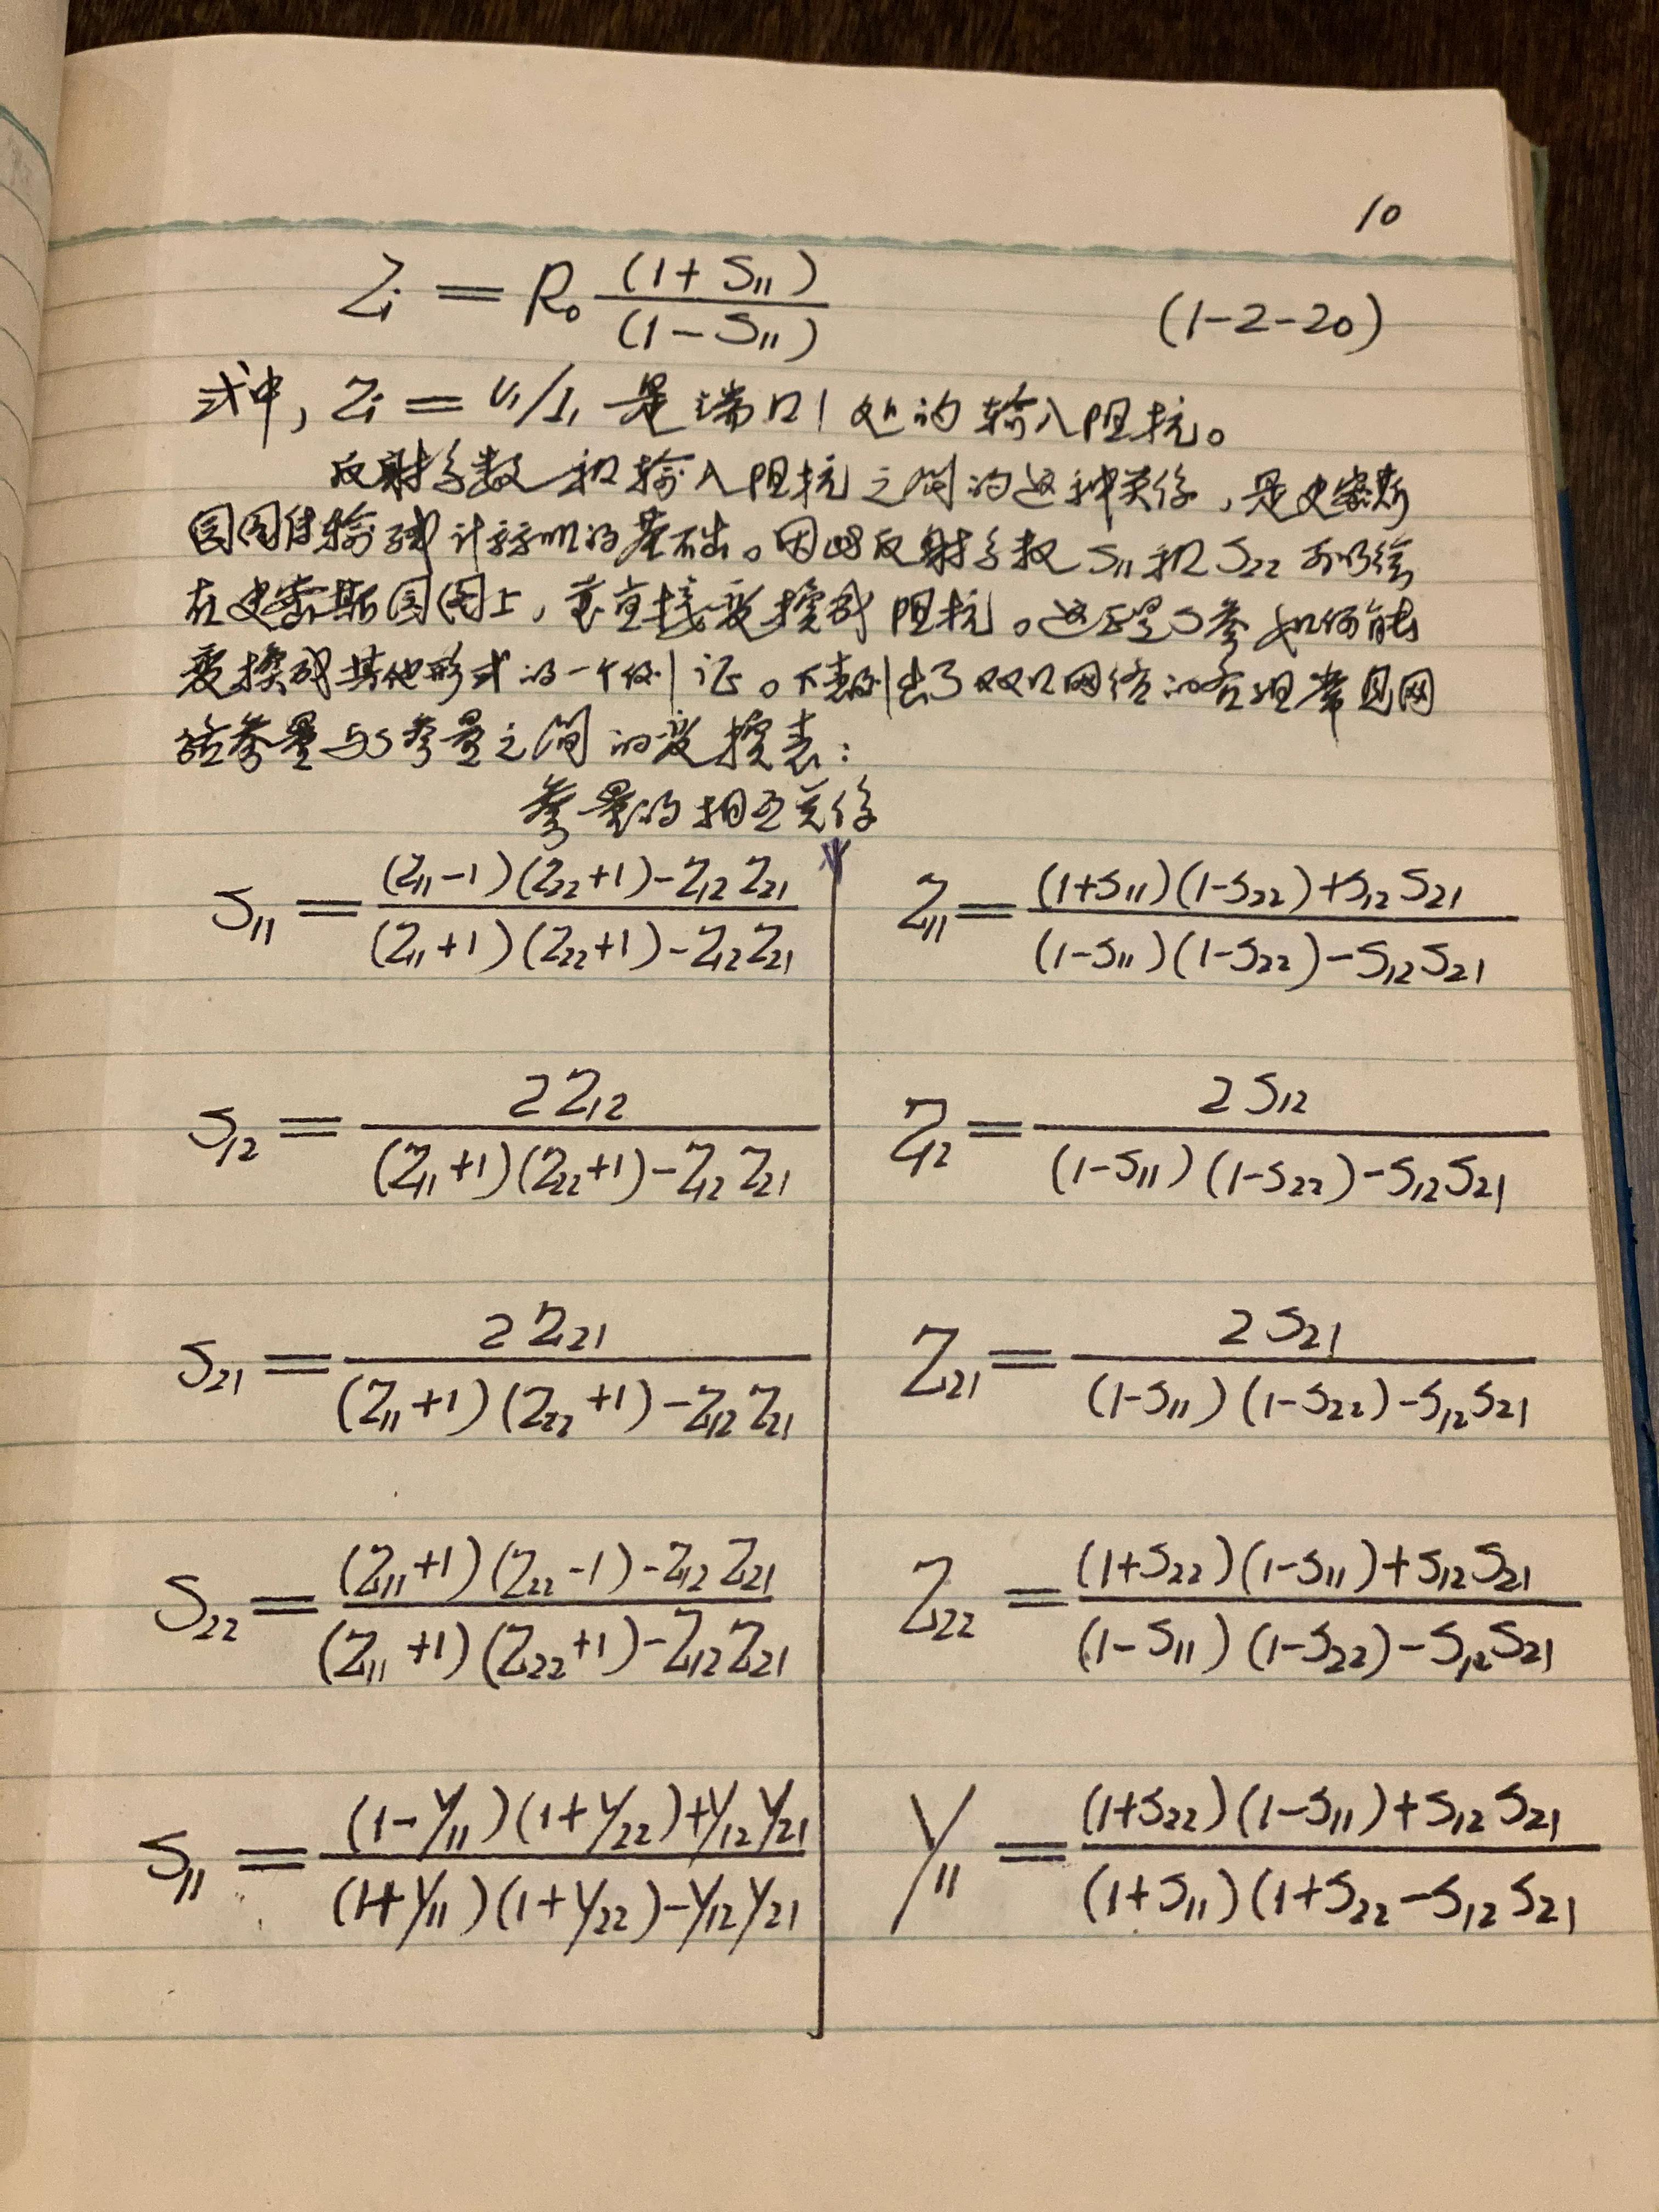 10
Zi = R₀ (1+S₁₁)/(1-S₁₁) (1-2-20)
式中, Zi = U₁/I₁ 是端口1处的输入阻抗。
反射系数和输入阻抗之间的这种关系,是史密斯
园图传输线计算机的基础。因此反射系数S₁₁和S₂₂可以绘
在史密斯园图上,直接变换成阻抗。这正是S参如何能
变换成其他形式的一个例证。下表列出了双口网络的各组常见网
络参量与S参量之间的变换表:
参量的相互关系
S₁₁ = ((Z₁₁-1)(Z₂₂+1)-Z₁₂Z₂₁)/((Z₁₁+1)(Z₂₂+1)-Z₁₂Z₂₁) Z₁₁ = ((1+S₁₁)(1-S₂₂)+S₁₂S₂₁)/((1-S₁₁)(1-S₂₂)-S₁₂S₂₁)
S₁₂ = 2Z₁₂/((Z₁₁+1)(Z₂₂+1)-Z₁₂Z₂₁) Z₁₂ = 2S₁₂/((1-S₁₁)(1-S₂₂)-S₁₂S₂₁)
S₂₁ = 2Z₂₁/((Z₁₁+1)(Z₂₂+1)-Z₁₂Z₂₁) Z₂₁ = 2S₂₁/((1-S₁₁)(1-S₂₂)-S₁₂S₂₁)
S₂₂ = ((Z₁₁+1)(Z₂₂-1)-Z₁₂Z₂₁)/((Z₁₁+1)(Z₂₂+1)-Z₁₂Z₂₁) Z₂₂ = ((1+S₂₂)(1-S₁₁)+S₁₂S₂₁)/((1-S₁₁)(1-S₂₂)-S₁₂S₂₁)
S₁₁ = ((1-y₁₁)(1+y₂₂)+y₁₂y₂₁)/((1+y₁₁)(1+y₂₂)-y₁₂y₂₁) y₁₁ = ((1+S₂₂)(1-S₁₁)+S₁₂S₂₁)/((1+S₁₁)(1+S₂₂-S₁₂S₂₁)